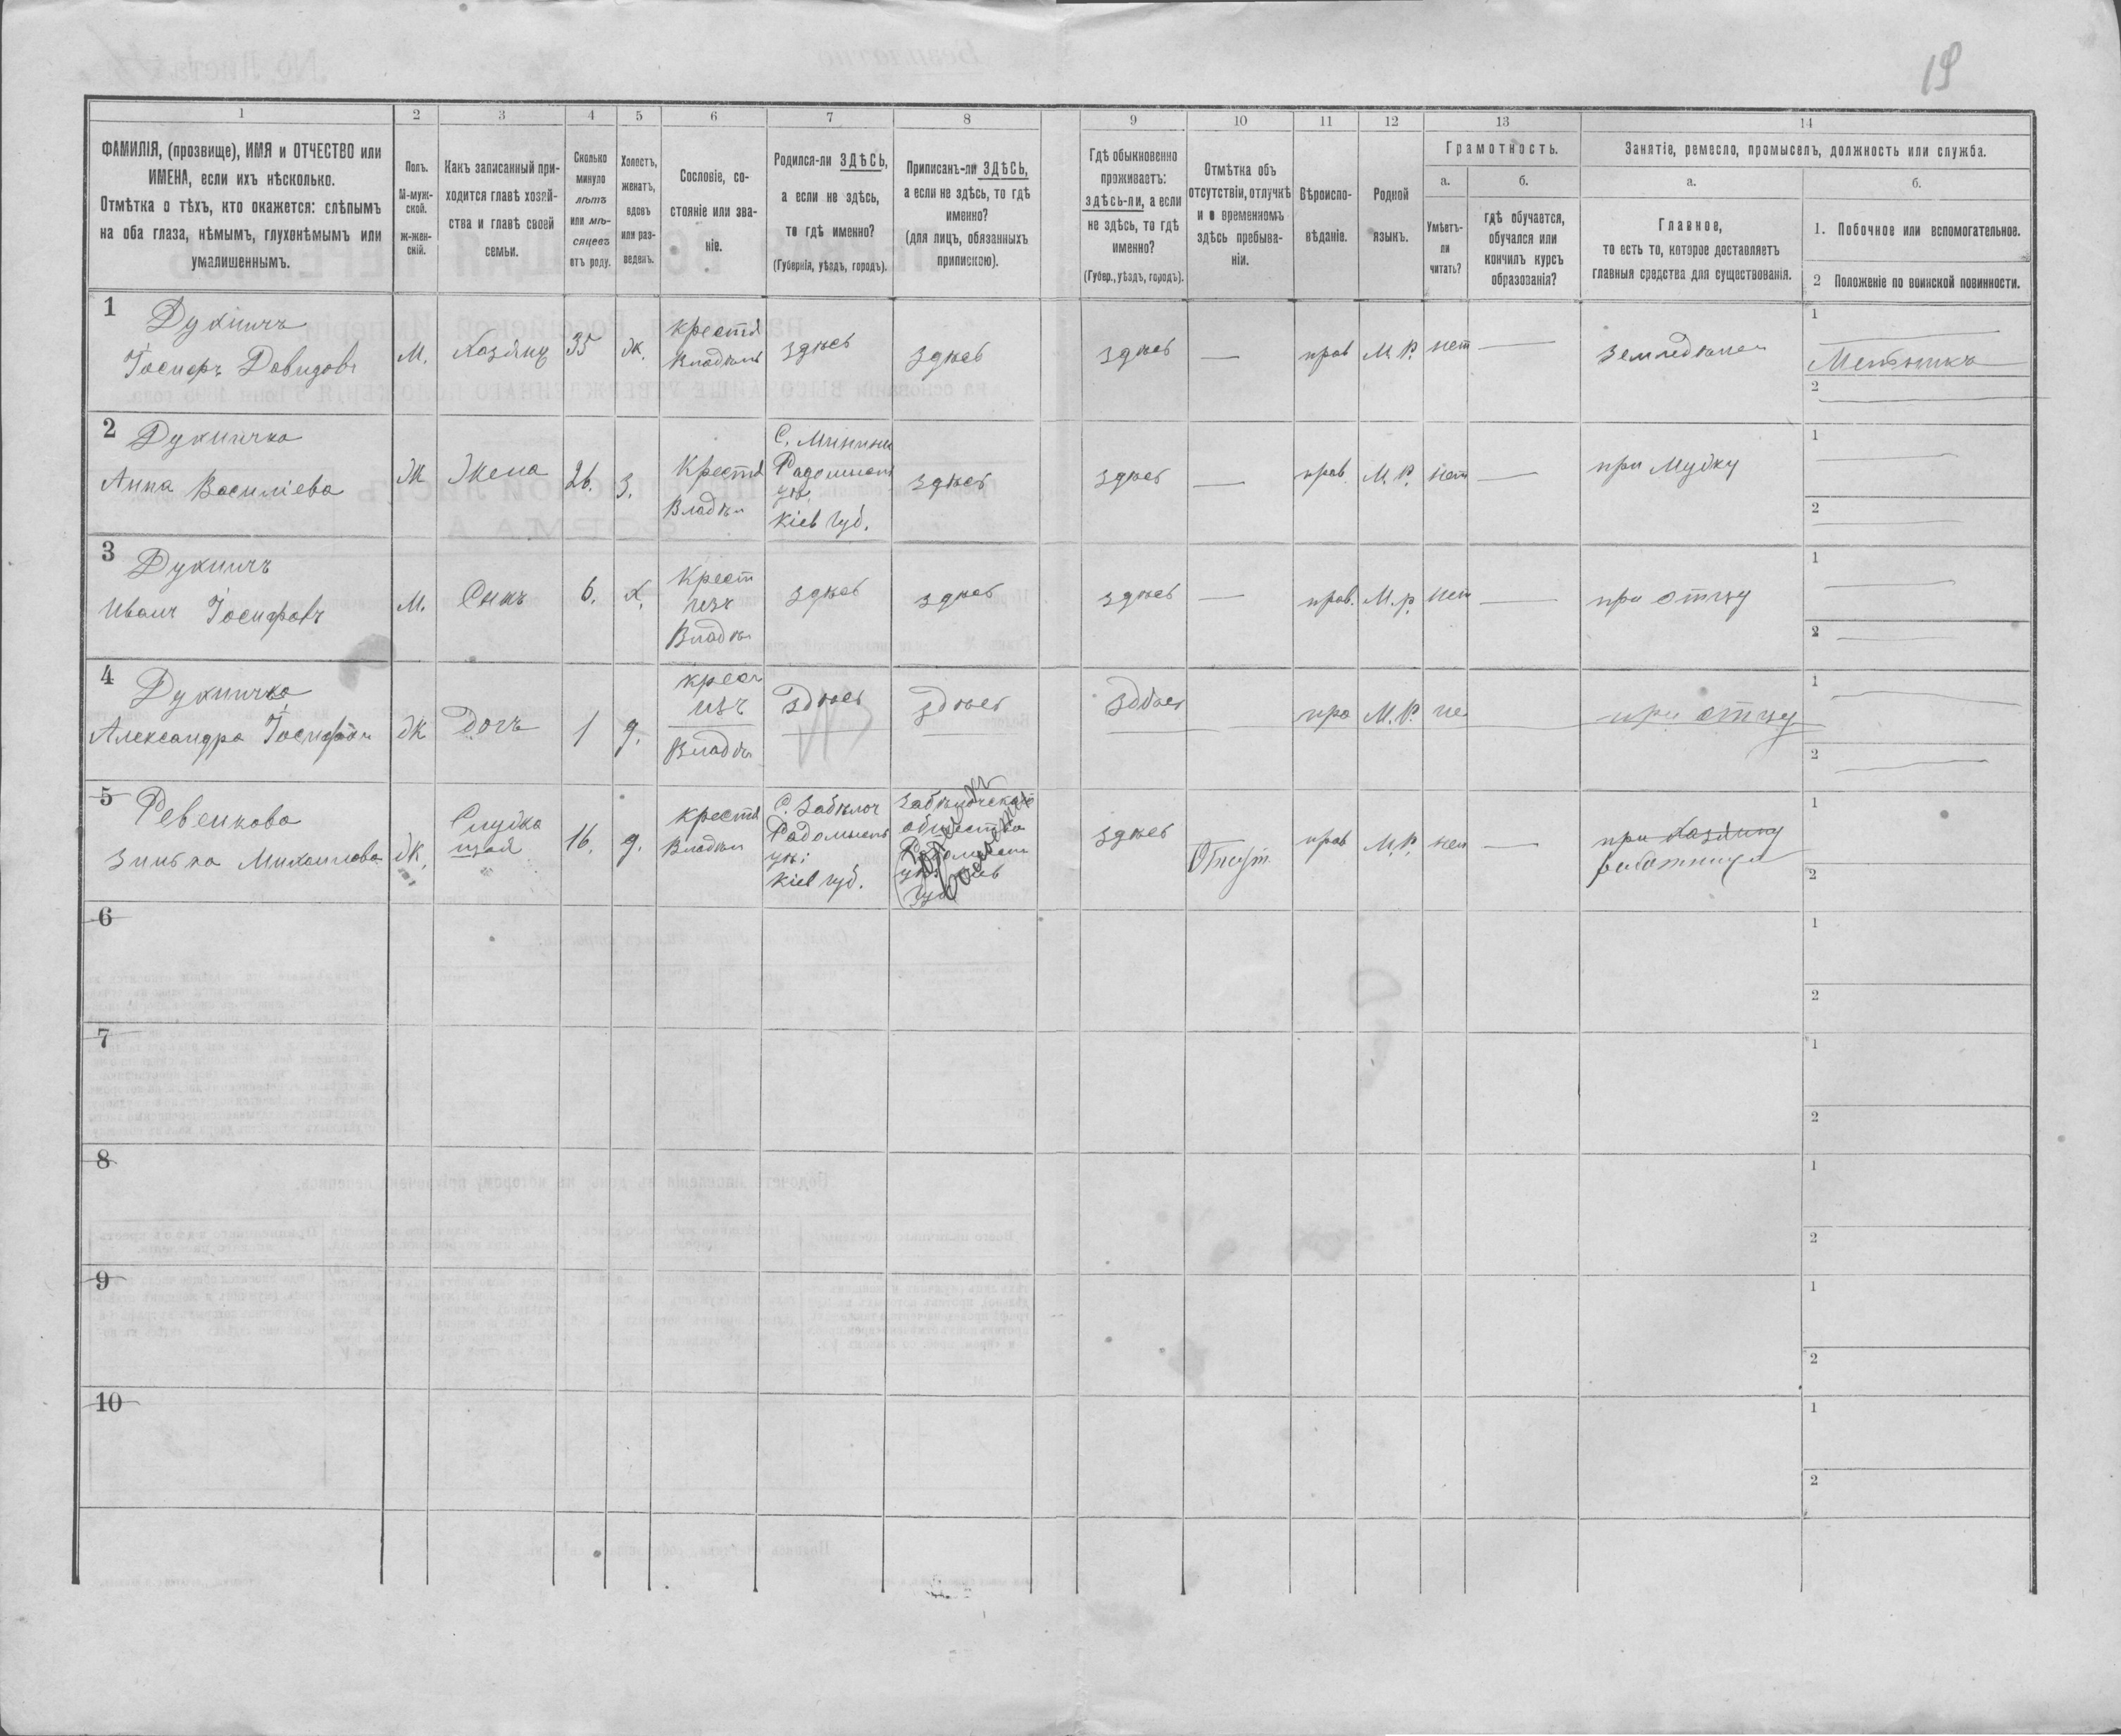 19
1
2
3
4
5
6
7
8
9
10
11
12
13
14
ФАМИЛІЯ, (прозвище), ИМЯ и ОТЧЕСТВО или
ИМЕНА, если ихъ нѣсколько.
Отмѣтка о тѣхъ, кто окажется: слѣпымъ
на оба глаза, нѣмымъ, глухонѣмымъ или
умалишеннымъ.
Полъ.
М-муж-
ской.
ж-жен-
скій.
Какъ записанный при-
ходится главѣ хозяй-
ства и главѣ своей
семьи.
Сколько
минуло
лѣтъ
или мѣ-
сяцевъ
отъ роду.
Холостъ,
женатъ,
вдовъ
или раз-
веденъ.
Сословіе, со-
стояніе или зва-
ніе.
Родился-ли ЗДѢСЬ,
а если не здѣсь,
то гдѣ именно?
(Губернія, уѣздъ, городъ).
Приписанъ-ли ЗДѢСЬ,
а если не здѣсь, то гдѣ
именно?
(для лицъ, обязанныхъ
припискою).
Гдѣ обыкновенно
проживаетъ:
здѣсь-ли, а если
не здѣсь, то гдѣ
именно?
(Губер., уѣздъ, городъ).
Отмѣтка объ
отсутствіи, отлучкѣ
и о временномъ
здѣсь пребыва-
ніи.
Вѣроиспо-
вѣданіе.
Родной
языкъ.
Грамотность.
а.
Умѣетъ-
ли
читать?
б.
гдѣ обучается,
обучался или
кончилъ курсъ
образованія?
Занятіе, ремесло, промыселъ, должность или служба.
а.
Главное,
то есть то, которое доставляетъ
главныя средства для существованія.
б.
1. Побочное или вспомогательное.
2 Положеніе по воинской повинности.
1
Іосифъ Давидовъ
М.
Хозяинъ
35
ж.
крестя
Владѣль
здѣсь
здѣсь
здѣсь
—
прав
М. Р.
нет
—
1
Мельникъ
2
2
Анна Василіева
Ж
Жена
26.
З.
Крестя
Владѣл
Радомысл
уѣз.
Кіев губ.
здѣсь
здѣсь
—
прав.
М. Р.
нет
—
при Мужу
1
2
3
Иванъ Іосифовъ
М.
Сынъ
6.
х.
Крест
изъ
Владѣ
здѣсь
здѣсь
здѣсь
—
прав.
М. р.
нет
—
при отцу
1
2
4
Александра
Ж
Дочъ
1
д.
крест
изъ
Владѣ
здѣсь
здѣсь
здѣсь
пра
М. Р.
не
при отцу
1
2
5
Ревенкова
Зинька Михаилова
Ж.
Служа
щая
16.
д.
крестя
Владѣл
Радомысл
уѣз
Кіев губ.
общества
здѣсь
прав
М. Р.
нет
—
при Хозяину
работница
1
2
6
1
2
7
1
2
8
1
2
9
1
2
10
1
2